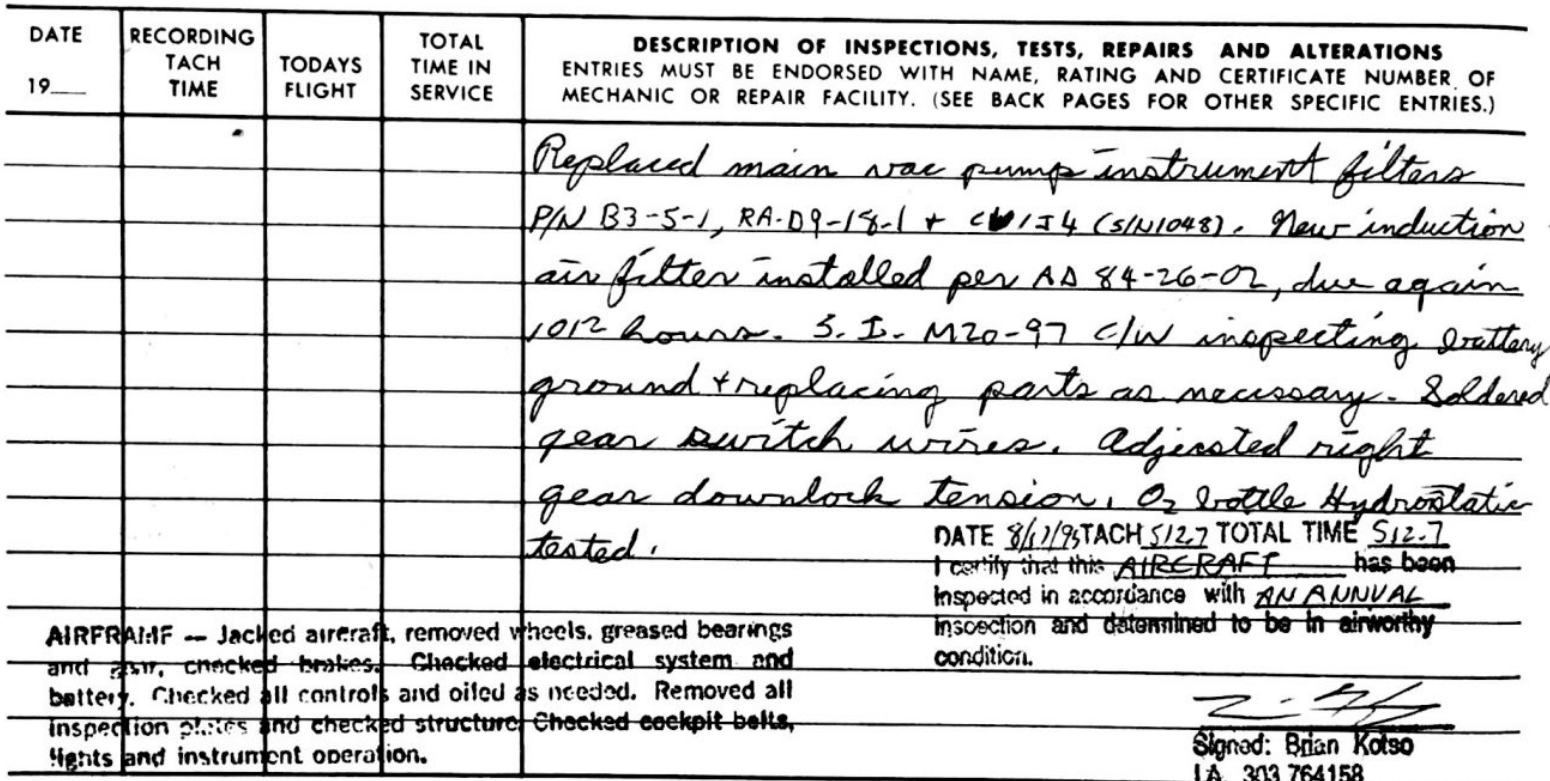 DATE
19
RECORDING
TACH
TIME
TODAYS
FLIGHT
TOTAL
TIME IN
SERVICE
DESCRIPTION OF INSPECTIONS, TESTS, REPAIRS AND ALTERATIONS
ENTRIES MUST BE ENDORSED WITH NAME, RATING AND CERTIFICATE NUMBER OF
MECHANIC OR REPAIR FACILITY. (SEE BACK PAGES FOR OTHER SPECIFIC ENTRIES.)
Replaced main vac pump instrument filters
P/N B3-5-1, RA-D9-18-1 + (S/N1048). New induction
air filter installed per AD 84-26-02, due again
1012 hours. S.I. M20-97 C/W inspecting battery
ground + replacing parts as necessary. Soldered
gear switch wires. Adjusted right
gear downlock tension. O2 bottle Hydrostatic
tested.
DATE TACH 512.7 TOTAL TIME 512.7
I certify that this AIRCRAFT has been
inspected in accordance with AN ANNUAL
inspection and determined to be in airworthy
condition.
AIRFRAME -- Jacked aircraft, removed wheels, greased bearings
and checked brakes. Checked electrical system and
battery. Checked all controls and oiled as needed. Removed all
inspection plates and checked structure. Checked cockpit belts,
lights and instrument operation.
Signed: Brian Kotso
I.A. 303764158